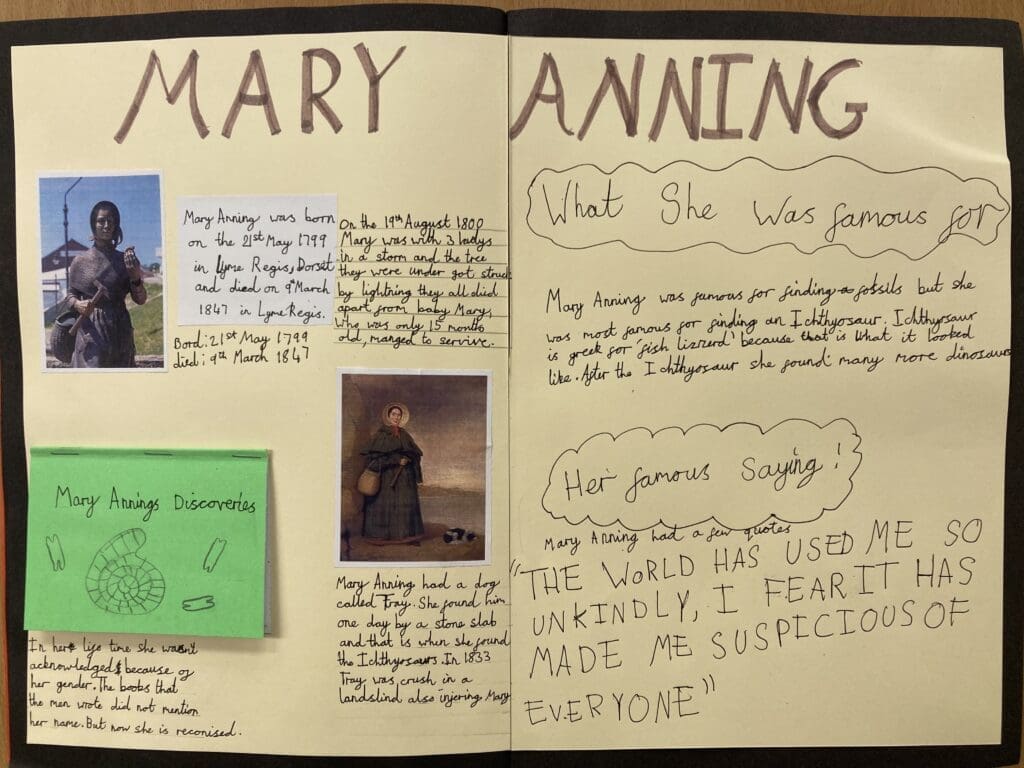 MARY ANNING
Mary Anning was born
on the 21st May 1799
in Lyme Regis, Dorset
and died on 9th March
1847 in Lyme Regis.
Bord: 21st May 1799
died: 9th March 1847
On the 19th August 1800
Mary was with 3 ladys
in a storm and the tree
they were under got struck
by lightning they all died
apart from baby Mary,
who was only 15 months
old, manged to servive.
Mary Annings Discoveries
In her life time she wasn't
acknowledged because of
her gender. The books that
the men wrote did not mention
her name. But now she is reconised.
Mary Anning had a dog
called Tray. She found him
one day by a stone slab
and that is when she found
the Ichthyosaurs. In 1833
Tray was crush in a
landslind also injering Mary
What She Was famous for
Mary Anning was famous for finding fossils but she
was most famous for finding an Ichthyosaur. Ichthyosaur
is greek for 'fish lizzerd' because that is what it looked
like. After the Ichthyosaur she found many more dinosaurs
Her famous Saying!
Mary Anning had a few quotes
"THE WORLD HAS USED ME SO
UNKINDLY, I FEAR IT HAS
MADE ME SUSPICIOUS OF
EVERYONE"